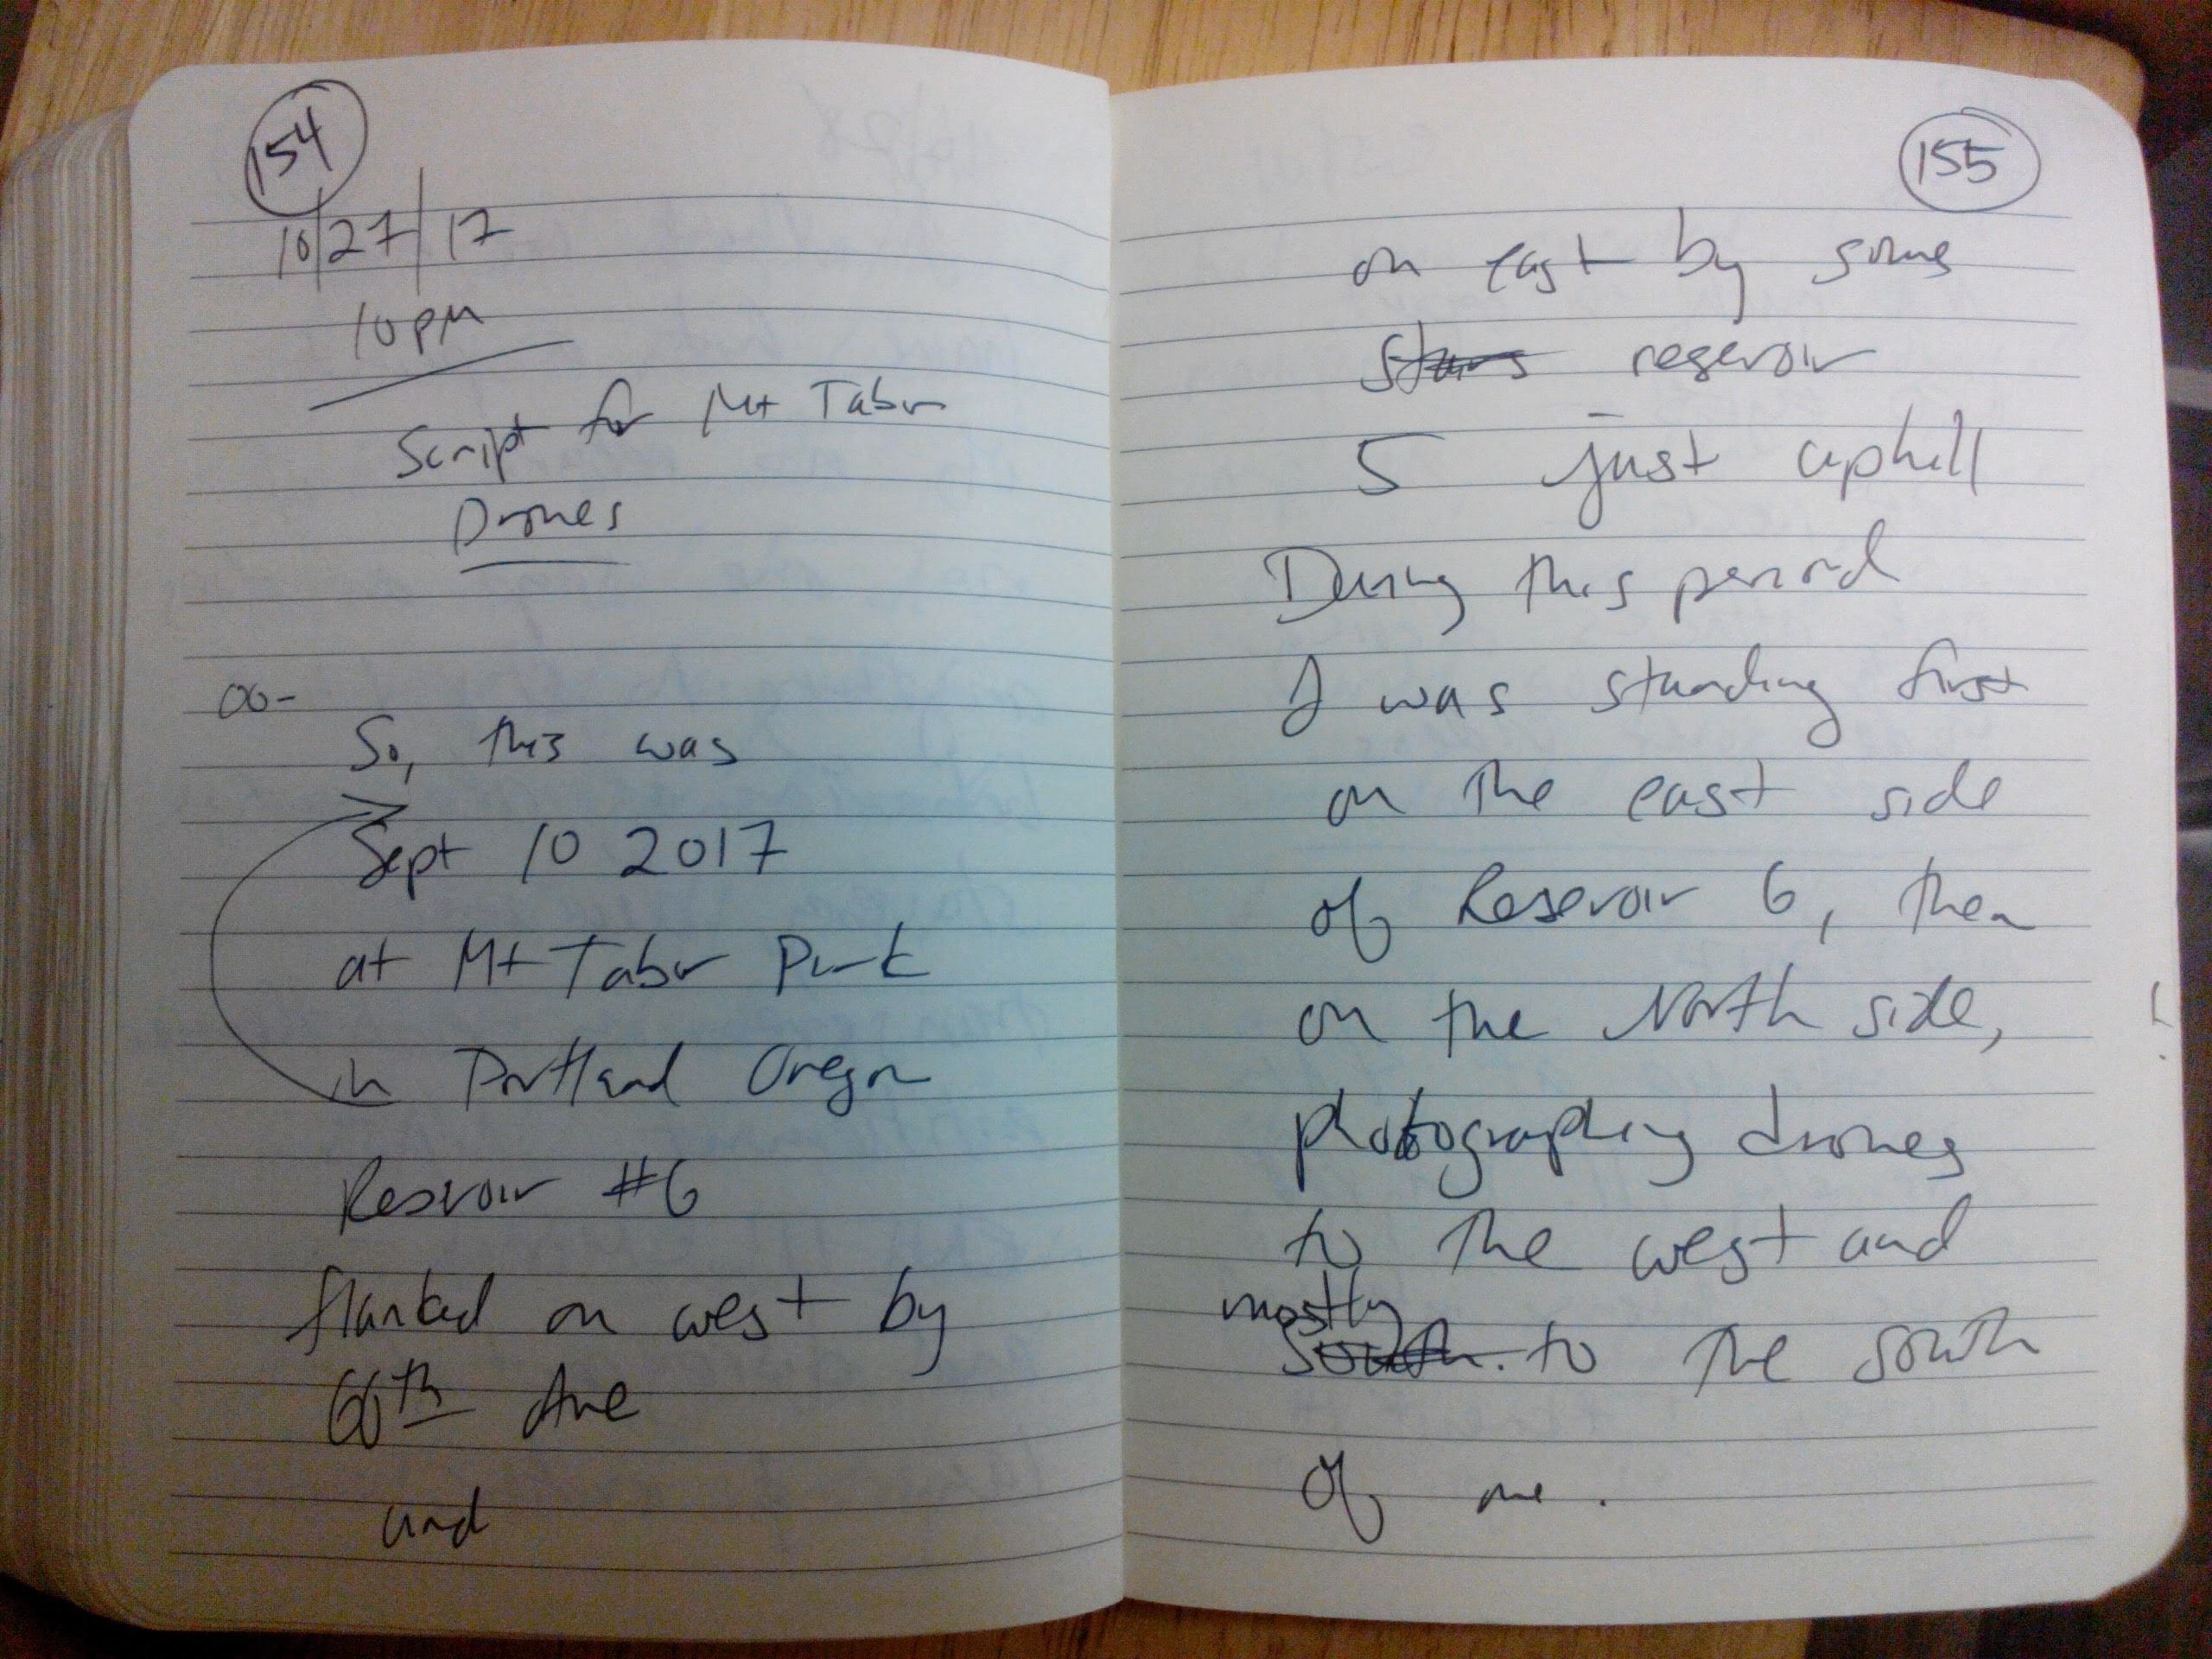 154
10/27/17
10pm
Script for Mt Tabor
Drones
00-
So, this was
Sept 10 2017
at Mt Tabor Park
in Portland Oregon
Reservoir #6
flanked on west by
60th Ave
and
155
on east by some
stairs reservoir
5 just uphill
During this period
I was standing first
on the east side
of Reservoir 6, then
on the North side,
photographing drones
to the west and
mostly
south. to the south
of me.